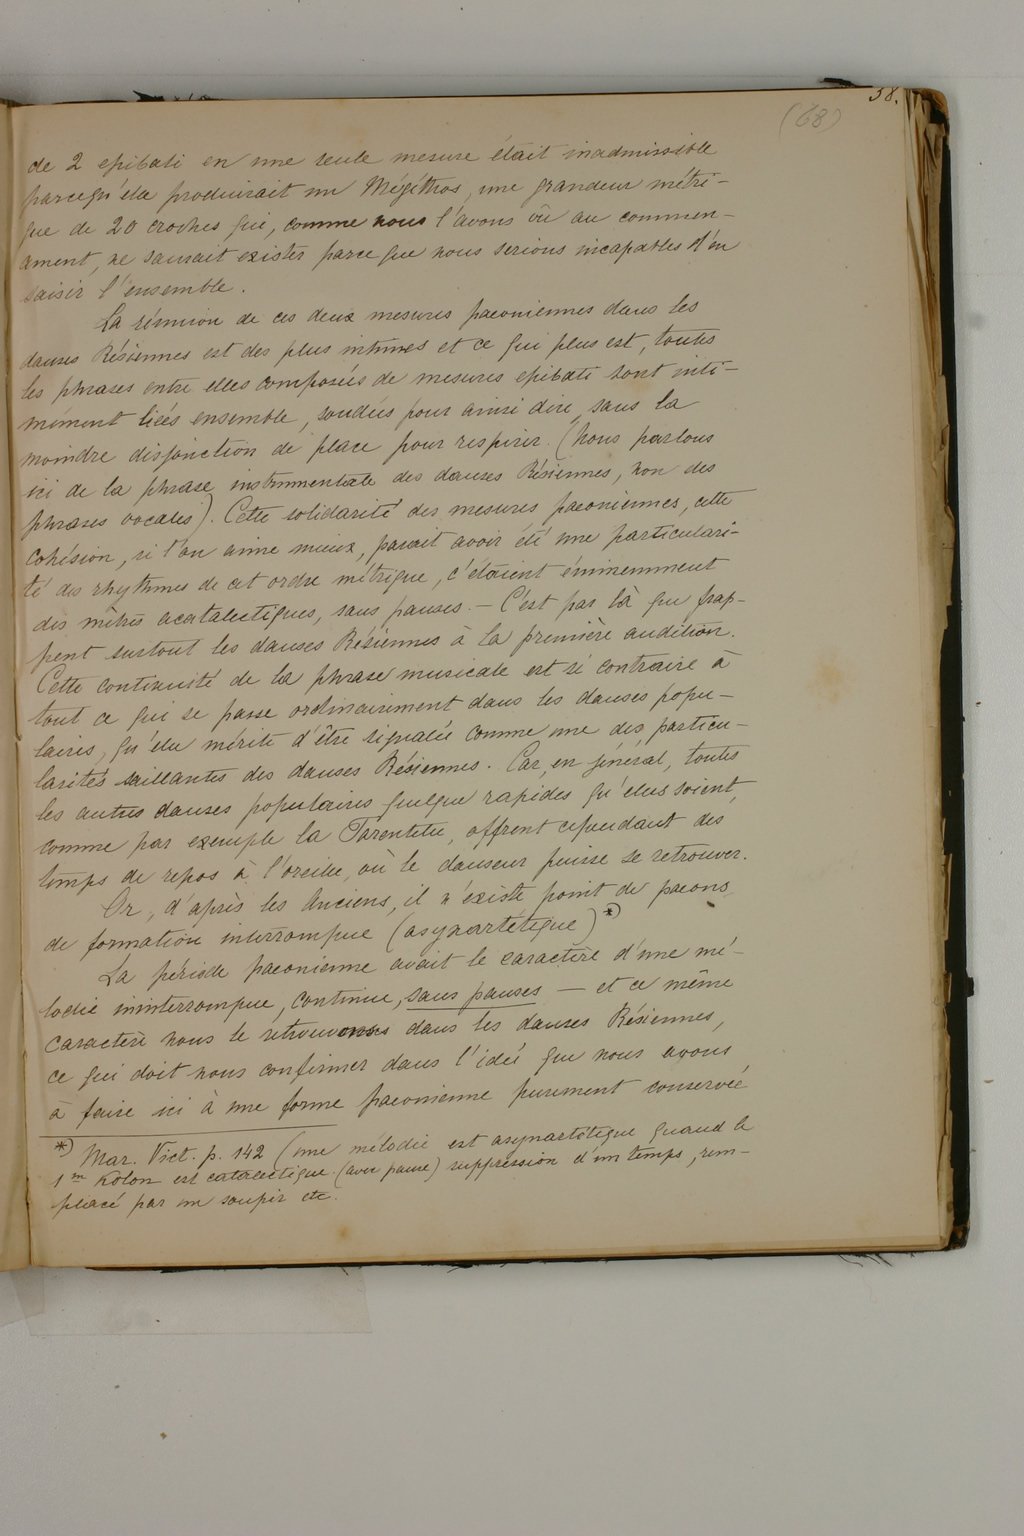 58.
(68)
de 2 epibati en une seule mesure était inadmissible
parcequ'ela produirait un Mégéthos, une grandeur métri-
que de 20 croches qui, comme nous l'avons vû au commen-
ament, ne saurait exister parce que nous serions incapables d'en
saisir l'ensemble.
La réunion de ces deux mesures paeoniennes dans les
danses Résiennes est des plus intimes et ce qui plus est, toutes
les phrases entre elles composées de mesures epibati sont inti-
mément liées ensemble, soudées pour ainsi dire, sans la
moindre disjonction de place pour respirer. (Nous parlons
ici de la phrase instrumentale des danses Résiennes, non des
phrases vocales). Cette solidarité des mesures paeoniennes, cette
cohésion, si l'on aime mieux, parait avoir été une particulari-
té des rhythmes de cet ordre métrique, c'étaient éminemment
des mètres acatalectiques, sans pauses. — C'est par là que frap-
pent surtout les danses Résiennes à la première audition.
Cette continuité de la phrase musicale est si contraire à
tout ce qui se passe ordinairement dans les danses popu-
laires, qu'elle mérite d'être signalée comme une des particu-
larités saillantes des danses Résiennes. Car, en général, toutes
les autres danses populaires quelque rapides qu'elles soient,
comme par exemple la Tarentelle, offrent cependant des
temps de repos à l'oreille, où le danseur puisse se retrouver.
Or, d'après les Anciens, il n'existe point de paeons
de formation interrompue (asynartétique)*)
La période paeonienne avait le caractère d'une mé-
lodie ininterrompue, continue, sans pauses — et ce même
caractère nous le retrouvons dans les danses Résiennes,
ce qui doit nous confirmer dans l'idée que nous avons
à faire ici à une forme paeonienne purement conservée
*) Mar. Vict. p. 142 (une mélodie est asynartétique quand le
1m Kolon est catalectique (avec pause) suppression d'un temps, rem-
placé par un soupir etc.